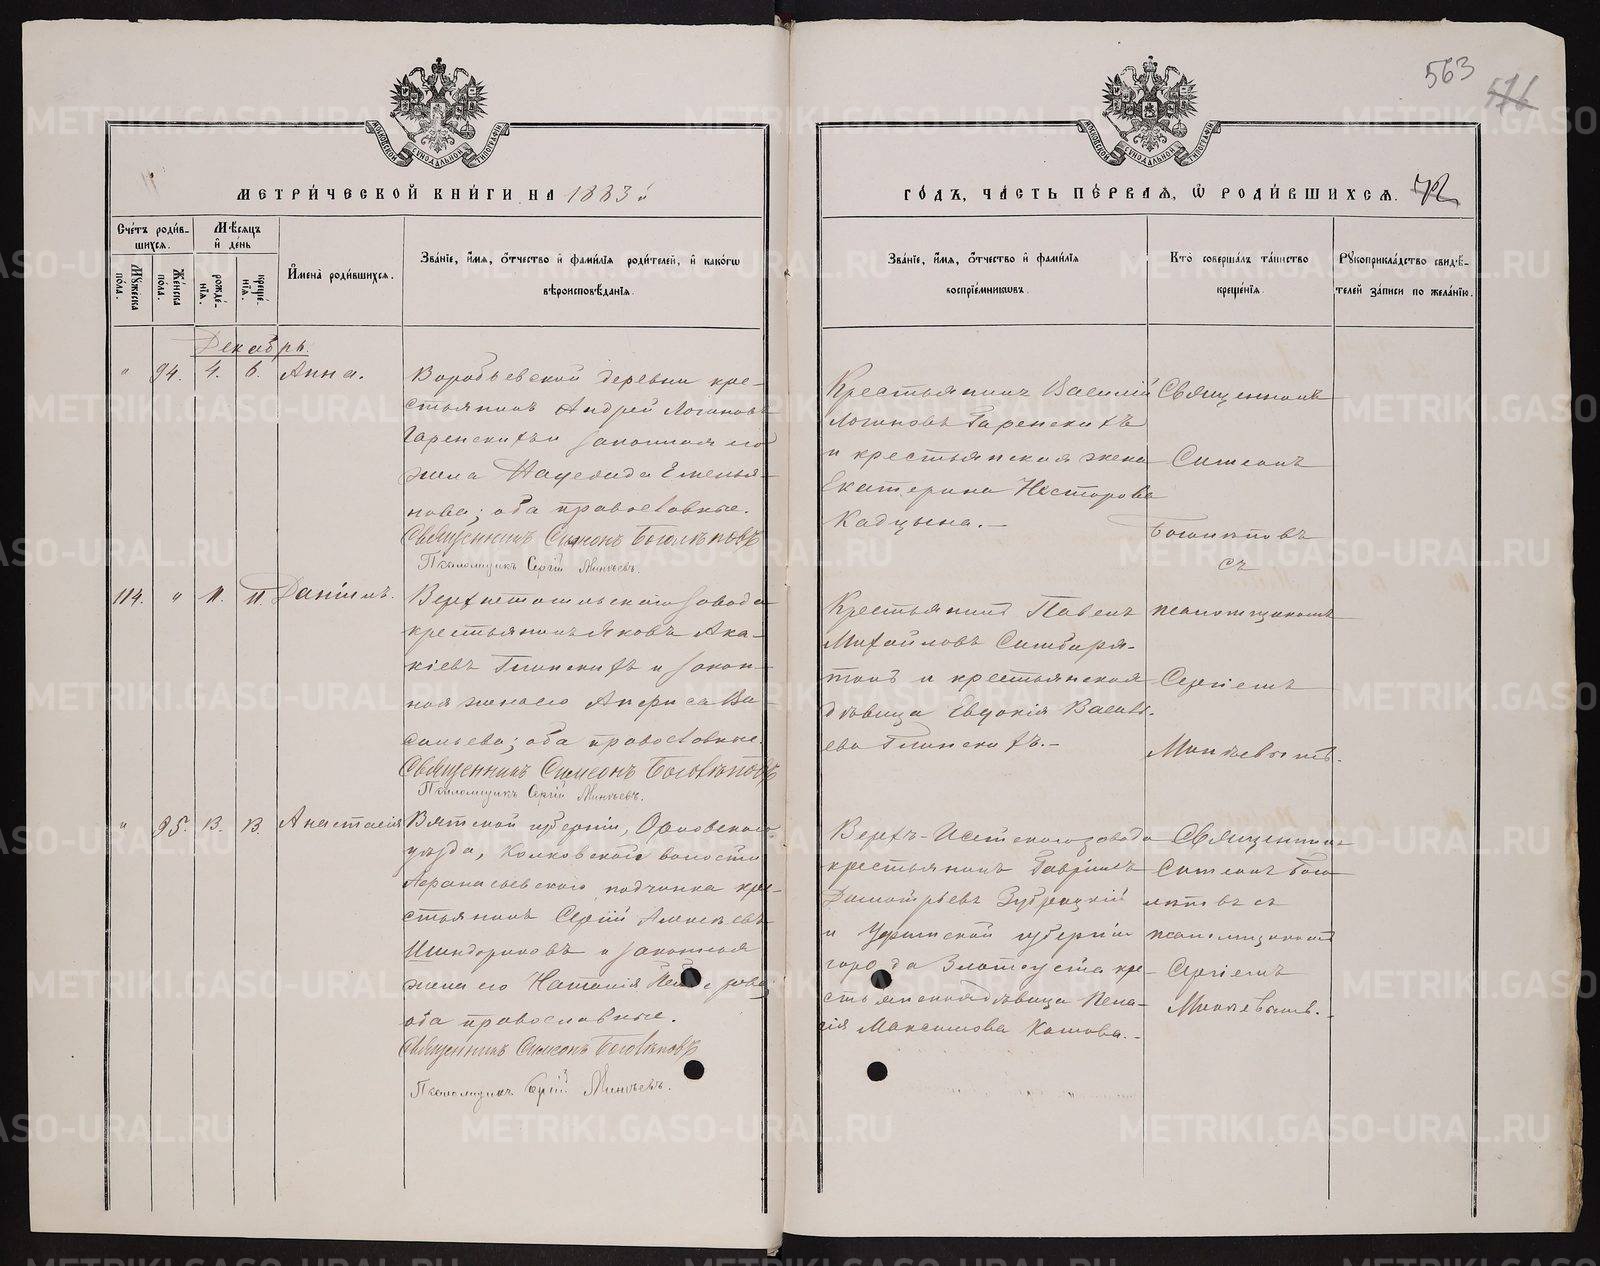 563
576
МЕТРИЧЕСКОЙ КНИГИ НА 1883й
ГОДЪ, ЧАСТЬ ПЕРВАЯ, Ѿ РОДИВШИХСЯ. 72
Счетъ родив-
шихся.
Мѣсяцъ
и день
Имена родившихся.
Званіе, имя, отчество и фамилія родителей, и какогѡ
вѣроисповѣданія.
Мужеска пола.
Женска пола.
рожде-
нія.
креще-
нія.
Званіе, имя, отчество и фамилія
воспріемниковъ.
Кто совершалъ таинство
крещенія.
Рукоприкладство свидѣ-
телей записи по желанію.
Декабрь.
" 94. 4. 6. Анна.
Воробьевской деревни кре-
стьянинъ Андрей Логиновъ
Гаренскихъ и законная его
жена Надежда Емелья-
нова; оба православные.
Священникъ Симеонъ Боголѣповъ
Псаломщикъ Сергій Минѣевъ.
Крестьянинъ Василій
Логиновъ Гаренскихъ
и крестьянская жена
Екатерина Несторова
Кадцына.-
Священникъ
Симеонъ
Боголѣповъ
съ
114. " 11. 11. Даніилъ.
Верхнетагильскаго завода
крестьянинъ Яковъ Ака-
кіевъ Глинскихъ и закон-
ная жена его Анфиса Ва-
сильева; оба православные.
Священникъ Симеонъ Боголѣповъ
Псаломщикъ Сергій Минѣевъ.
Крестьянинъ Павелъ
Михайловъ
и крестьянская
дѣвица Евдокія Василь-
ева Глинскихъ.-
псаломщикомъ
Сергіемъ
Минѣевымъ.
" 95. 13. 13. Анастасія
Вятской губерніи, Орловскаго
уѣзда, волости
Афанасьевскаго починка кре-
стьянинъ Сергій Алексѣевъ
и законная
жена его Наталія
оба православные.
Священникъ Симеонъ Боголѣповъ
Псаломщикъ Сергій Минѣевъ.
Верхъ-Исетскаго завода
крестьянинъ Гавріилъ
Димитріевъ Зубрицкій
и Уфимской губерніи
города Златоуста кре-
стьянская дѣвица Пела-
гія Максимова
Священникъ
Симеонъ Бого
лѣповъ съ
псаломщикомъ
Сергіемъ
Минѣевымъ.-
METRIKI.GASO-URAL.RU